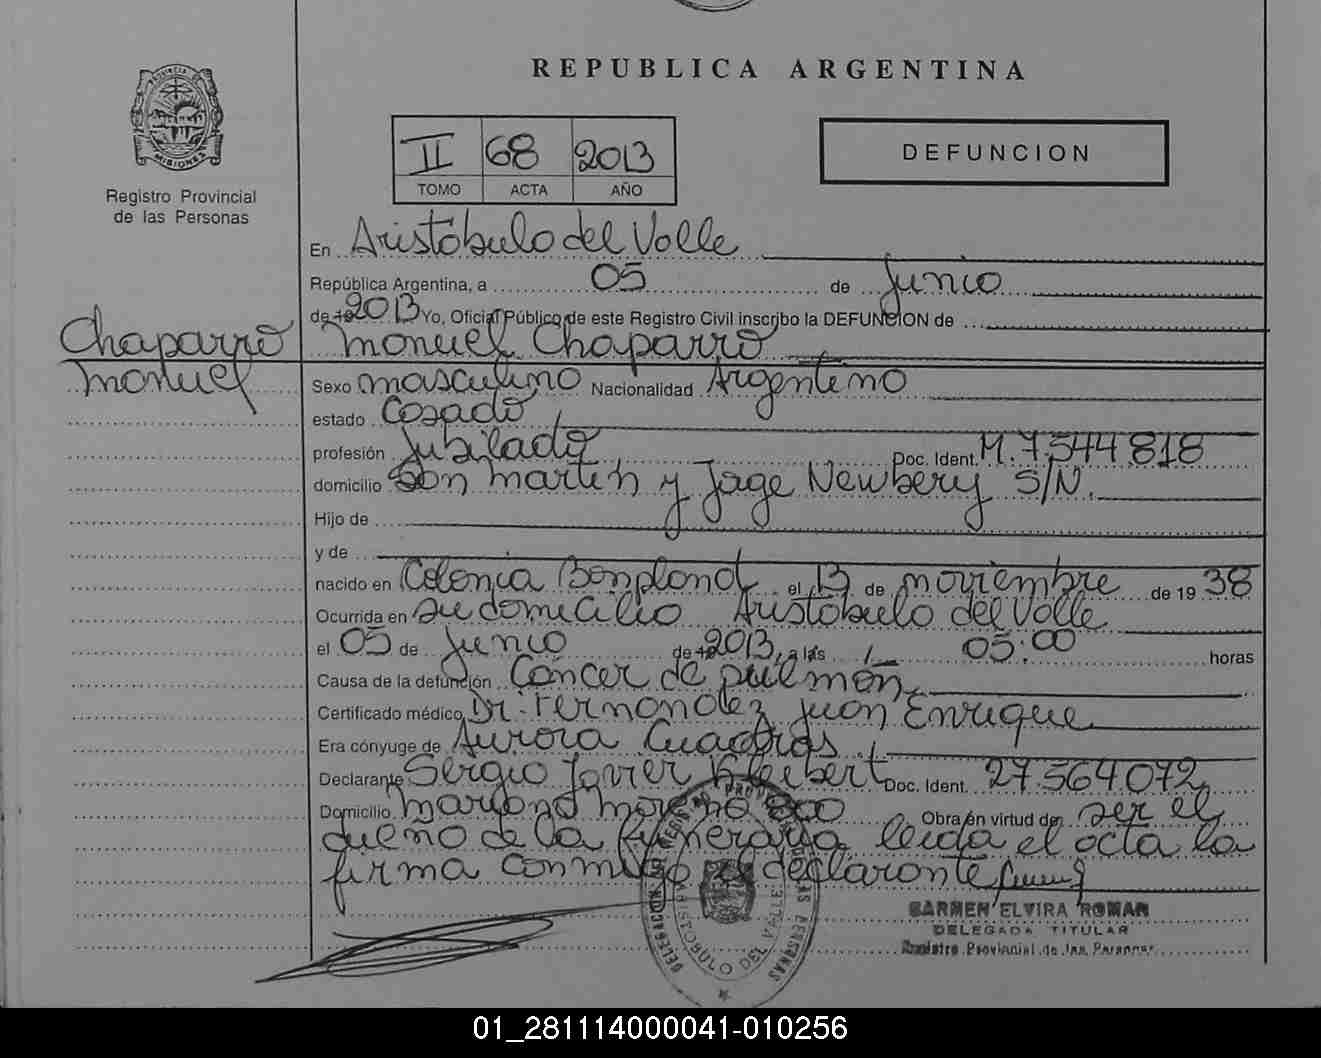 REPUBLICA ARGENTINA
PROVINCIA DE
MISIONES
Registro Provincial
de las Personas
II 68 2013
TOMO ACTA AÑO
DEFUNCION
En Aristóbulo del Valle
República Argentina, a 05 de Junio
de 19 2013 Yo, Oficial Público de este Registro Civil inscribo la DEFUNCION de
Chaparro
Manuel
Manuel Chaparro
Sexo masculino Nacionalidad Argentino
estado Casado
profesión Jubilado Doc. Ident. M. 7.544.818
domicilio San Martín y Jorge Newbery S/N.
Hijo de
y de
nacido en Colonia Bonpland el 13 de noviembre de 19 38
Ocurrida en su domicilio Aristóbulo del Valle
el 05 de Junio de 19 2013, a las 05:00 horas
Causa de la defunción Cáncer de pulmón
Certificado médico Dr. Fernandez Juan Enrique
Era cónyuge de Aurora Cuadras
Declarante Sergio Javier Kleibert Doc. Ident. 27.564.072
Domicilio Mariano Moreno 800 Obra en virtud de ser el
dueño de la funeraria leida el acta la
firma conmigo el declarante
CARMEN ELVIRA ROMAN
DELEGADA TITULAR
Registro Provincial de las Personas
ARISTOBULO DEL VALLE
01_281114000041-010256